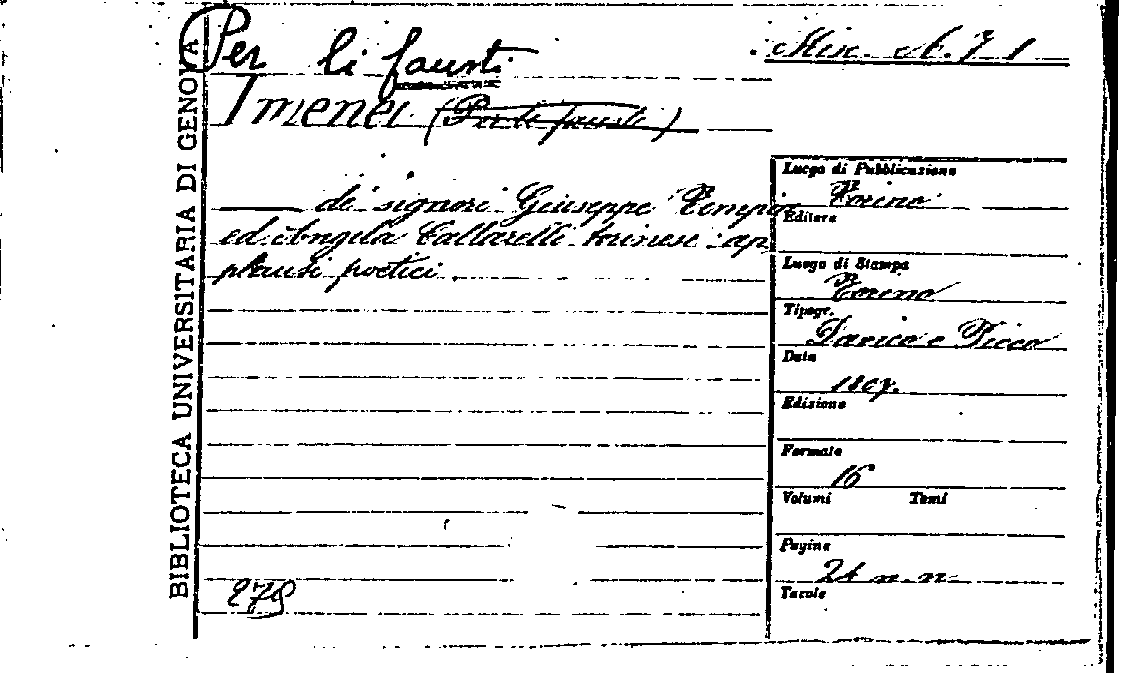 BIBLIOTECA UNIVERSITARIA DI GENOVA
Per li fausti
Misc. A. 7 1
Imenei (Per li fausti)
di signori Giuseppe
ed Angela torinesi: ap
plausi poetici.
279
Luogo di Pubblicazione
Torino
Editore
Luogo di Stampa
Torino
Tipogr.
e Picco
Data
1807.
Edizione
Formato
16
Volumi Tomi
Pagine
24 n. n.
Tavole